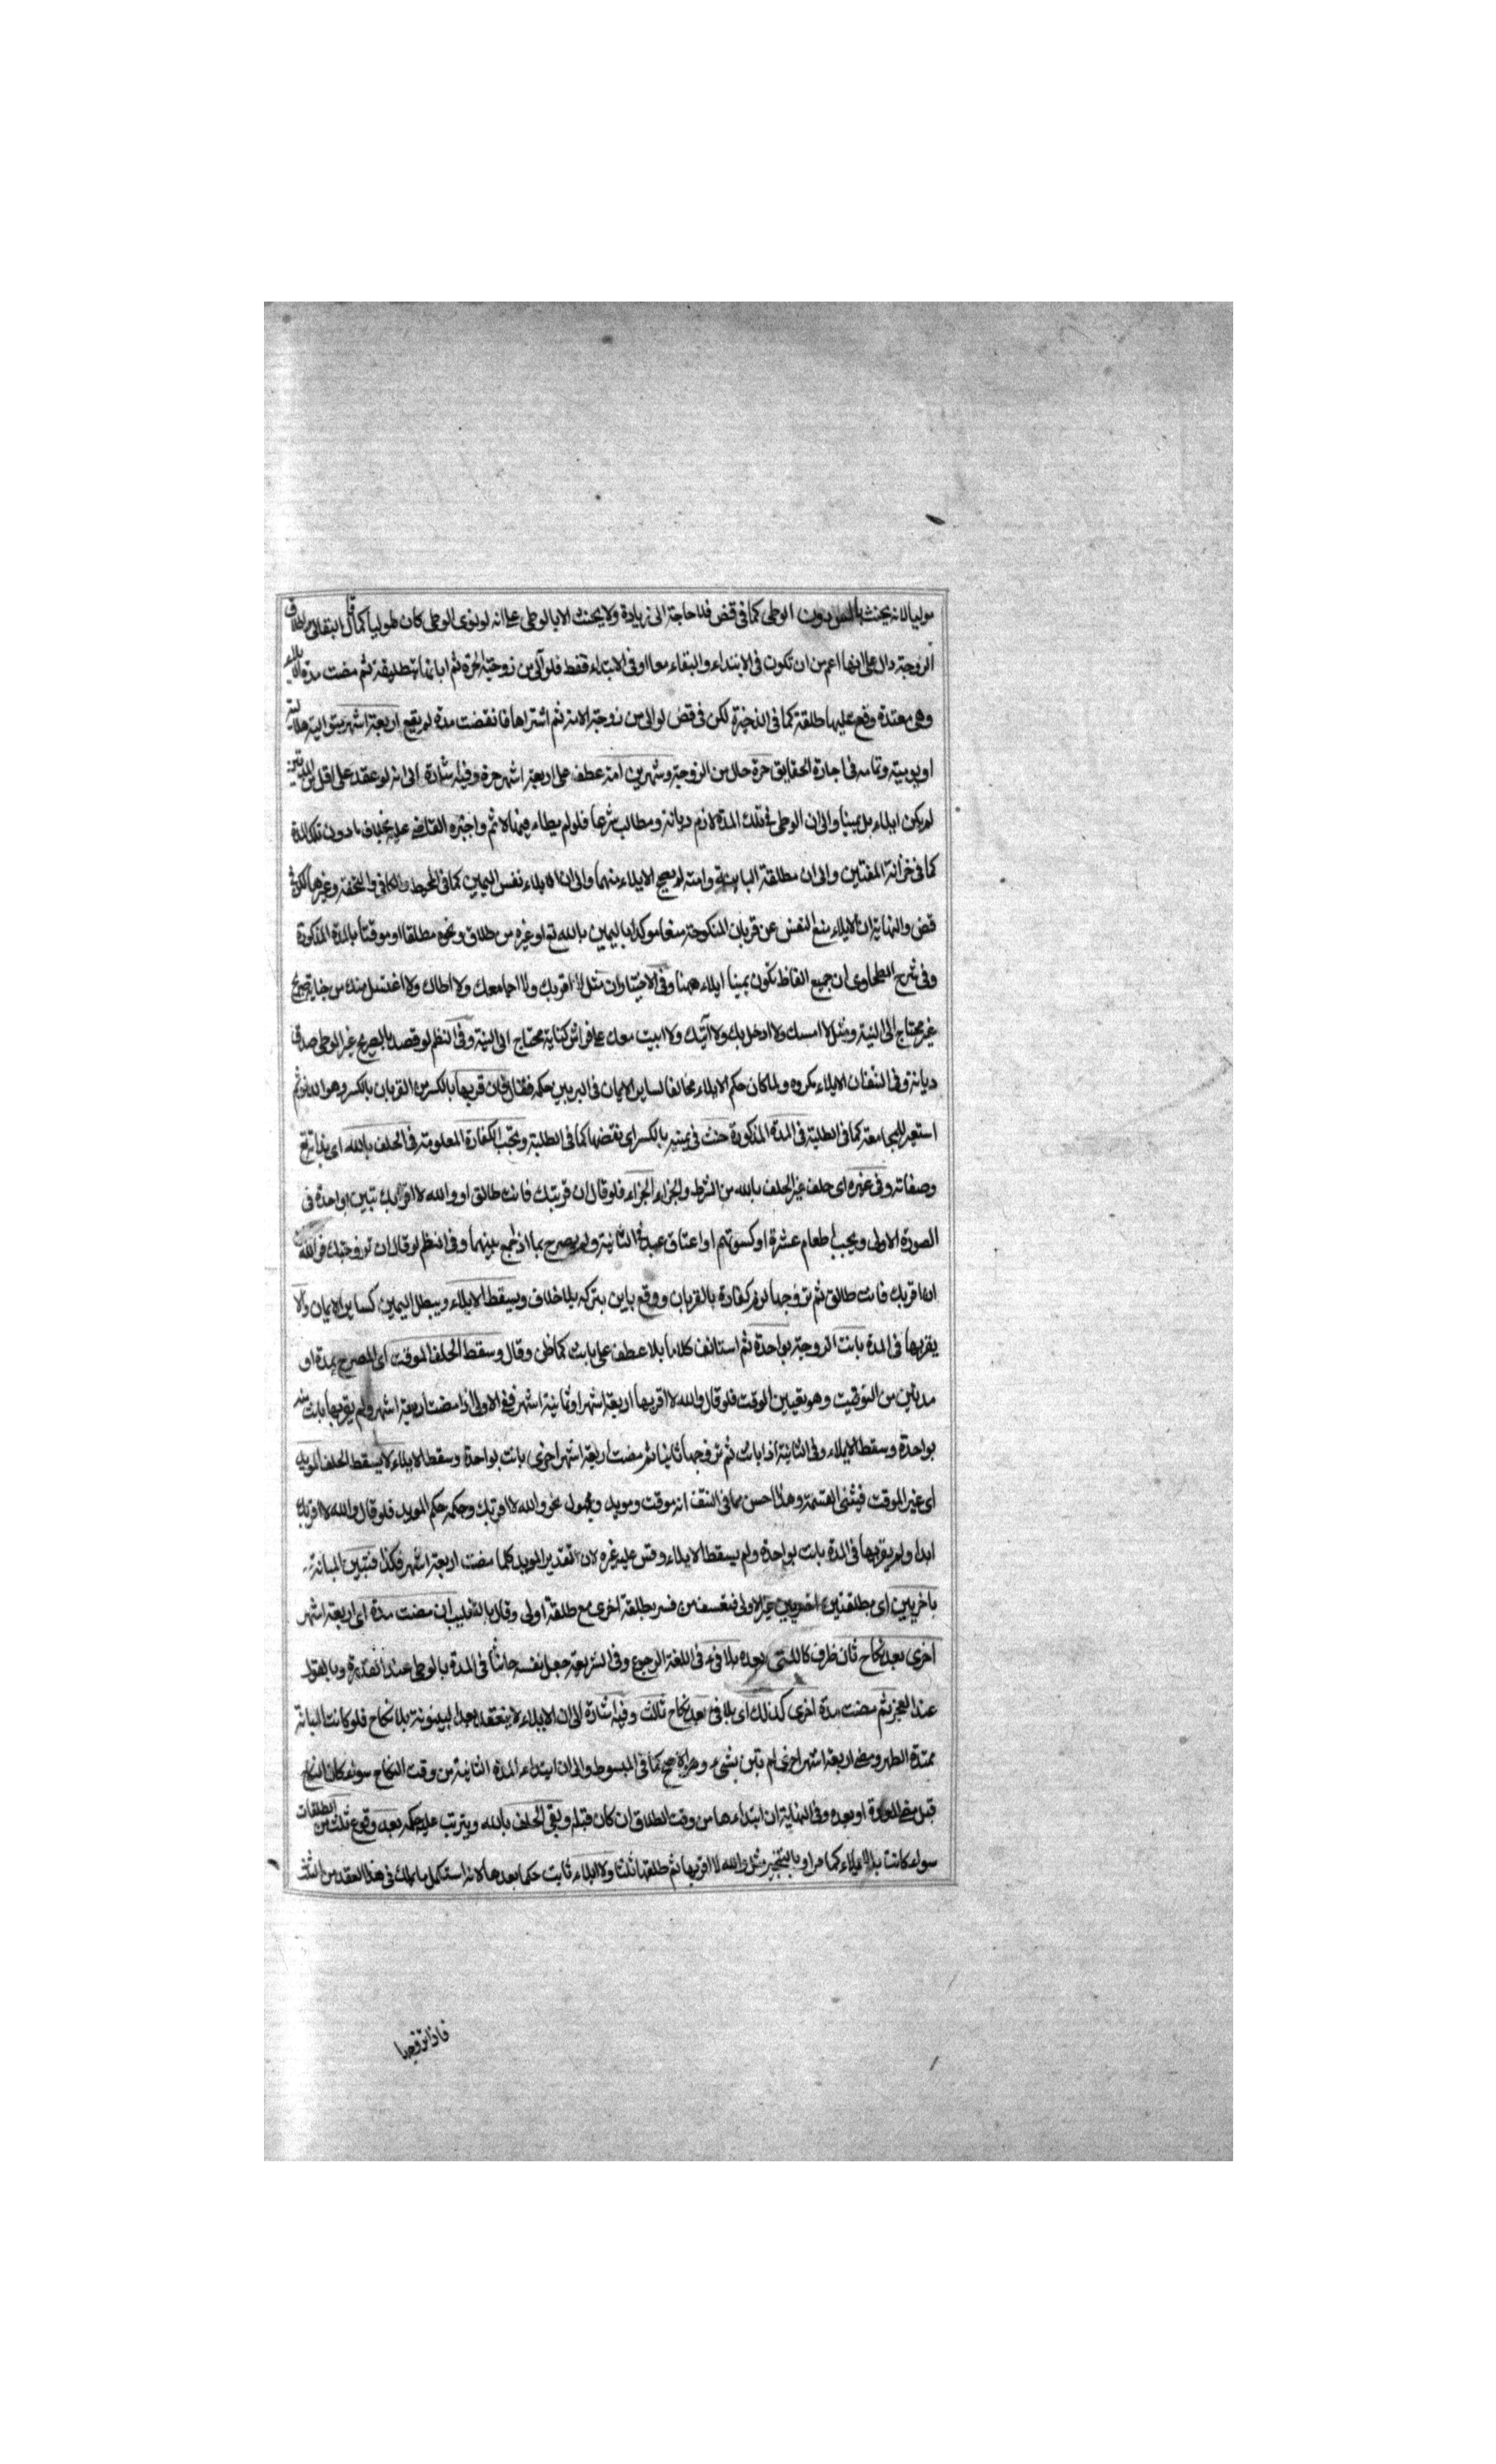 موليا لانه يحنث بالمس بدون الوطى كما فى قض فلا حاجة الى زيادة ولا يحنث الا بالوطى على انه لو نوى الوطى كان موليا كما قال البقالى من اطلاق
الزوجة دال على انها اعم من ان تكون فى الابتداء والبقاء معا او فى الابتداء فقط فلو آلى من زوجته الحرة ثم ابانها بتطليقة ثم مضت مدة الايلاء
وهى معتدة وقع عليها طلقة كما فى الذخيرة لكن فى قض لو الى من زوجته الامة ثم اشتراها فانقضت مدة لم يقع اربعة اشهر متوالية هلالية
او يومية وتمامه فى اجارة الحقايق حرة حال من الزوجة وشهرين امة عطف على اربعة اشهر حرة وفيه اشارة الى انه لو عقد على اقل من المدتين
لم يكن ايلاء بل يمينا والى ان الوطى فى تلك المدة لازم ديانة ومطالب شرعا فلو لم يطاء فيها لاثم واجبره القاضى عليه بخلاف ما دون تلك المدة
كما فى خزانة المفتين والى ان مطلقة الباينة وامته لم يصح الايلاء منهما والى ان الايلاء نفس اليمين كما فى المحيط والكافى والتحفة وغيرها لكن فى
قض والنهاية ان الايلاء منع النفس عن قربان المنكوحة منعا موكدا باليمين بالله تع او غيره من طلاق ونحوه مطلقا او موقتا بالمدة المذكورة
وفى شرح الطحاوى ان جميع الفاظ تكون يمينا ايلاء ههنا وفى الاختيار ان مثل لا اقربك ولا اجامعك ولا اطاك ولا اغتسل منك من جنابة صريح
غير محتاج الى النية ومثل لا امسك ولا ادخل بك ولا آتيك ولا ابيت معك على فراش كناية محتاج الى النية وفى النظم لو قصد بالصريح غير الوطى صدق
ديانة وفى النتف ان الايلاء مكروه ولما كان حكم الايلاء مخالفا لساير الايمان فى البر بين حكمه فقال فان قربها بالكسر من القربان بالكسر وهو الدنو ثم
استعير للمجامعة كما فى الطلبة فى المدة المذكورة حنث فى يمينه بالكسر اى نقضها كما فى الطلبة وتجب الكفارة المعلومة فى الحلف بالله اى بذاته تع
وصفاته وفى غيره اى حلف غير الحلف بالله من الشرط والجزاء الجزاء فلو قال ان قربتك فانت طالق او والله لا اقربك تبين بواحدة فى
الصورة الاولى ويجب اطعام عشرة او كسوتهم او اعتاق عبد فى الثانية ولم يصرح بما اذا جمع بينهما وفى النظم لو قال ان تزوجتك فوالله
لا اقربك فانت طالق ثم تزوجها لزم كفارة بالقربان ووقع باين بتركه بلا خلاف ويسقط الايلاء ويبطل اليمين كساير الايمان والا
يقربها فى المدة بانت الزوجة بواحدة ثم استانف كلاما بلا عطف على بانت كما ظن وقال وسقط الحلف الموقت اى المصرح بمدة او
مدتين من التوقيت وهو تعيين الوقت فلو قال والله لا اقربها اربعة اشهر او ثمانية اشهر ففى الاولى اذا مضت اربعة اشهر ولم يقربها بانت منه
بواحدة وسقط الايلاء وفى الثانية اذا بانت ثم تزوجها ثانيا ثم مضت اربعة اشهر اخرى بانت بواحدة وسقط الايلاء لا يسقط الحلف الموبد
اى غير الموقت فيثنى القسمة وهذا احسن مما فى النتف انه موقت وموبد ومجهول نحو والله لا اقربك وحكمه حكم الموبد فلو قال والله لا اقربك
ابدا ولم يقربها فى المدة بانت بواحدة ولم يسقط الايلاء وقس عليه غيره لان تقدير الموبد كلما مضت اربعة اشهر فكذا فتبين المبانة
باخريين اى بطلقتين اخريين غير الاولى فتعسف من فسر بطلقة اخرى مع طلقة اولى وقال بالتغليب ان مضت مدة اى اربعة اشهر
اخرى بعد نكاح ثان ظرف كالمنتهى بعده بلا فىء فى اللغة الرجوع وفى الشريعة جعل نفسه حانثا فى المدة بالوطى عند القدرة وبالقول
عند العجز ثم مضت مدة اخرى كذلك اى بلا فىء بعد نكاح ثالث وفيه اشارة الى ان الايلاء لا ينعقد بعد البينونة بلا نكاح فلو كانت المبانة
ممتدة الطهر ومضى اربعة اشهر اخرى لم تبن بشىء وهو الاصح كما فى المبسوط والى ان ابتداء المدة الثانية من وقت النكاح سواء كان النكاح
قبل مضى العدة او بعده وفى النهاية ان ابتداءها من وقت الطلاق ان كان قبله وبقى الحلف بالله ويترتب عليه حكمه بعد وقوع ثلث من الطلقات
سواء كانت بالايلاء كما مر او بالتنجيز مثل والله لا اقربها ثم طلقها ثلثا ولا ايلاء ثابت حكما بعدها لانه استكمل ما ملك فى هذا العقد من الثلث
فاذا تزوجها